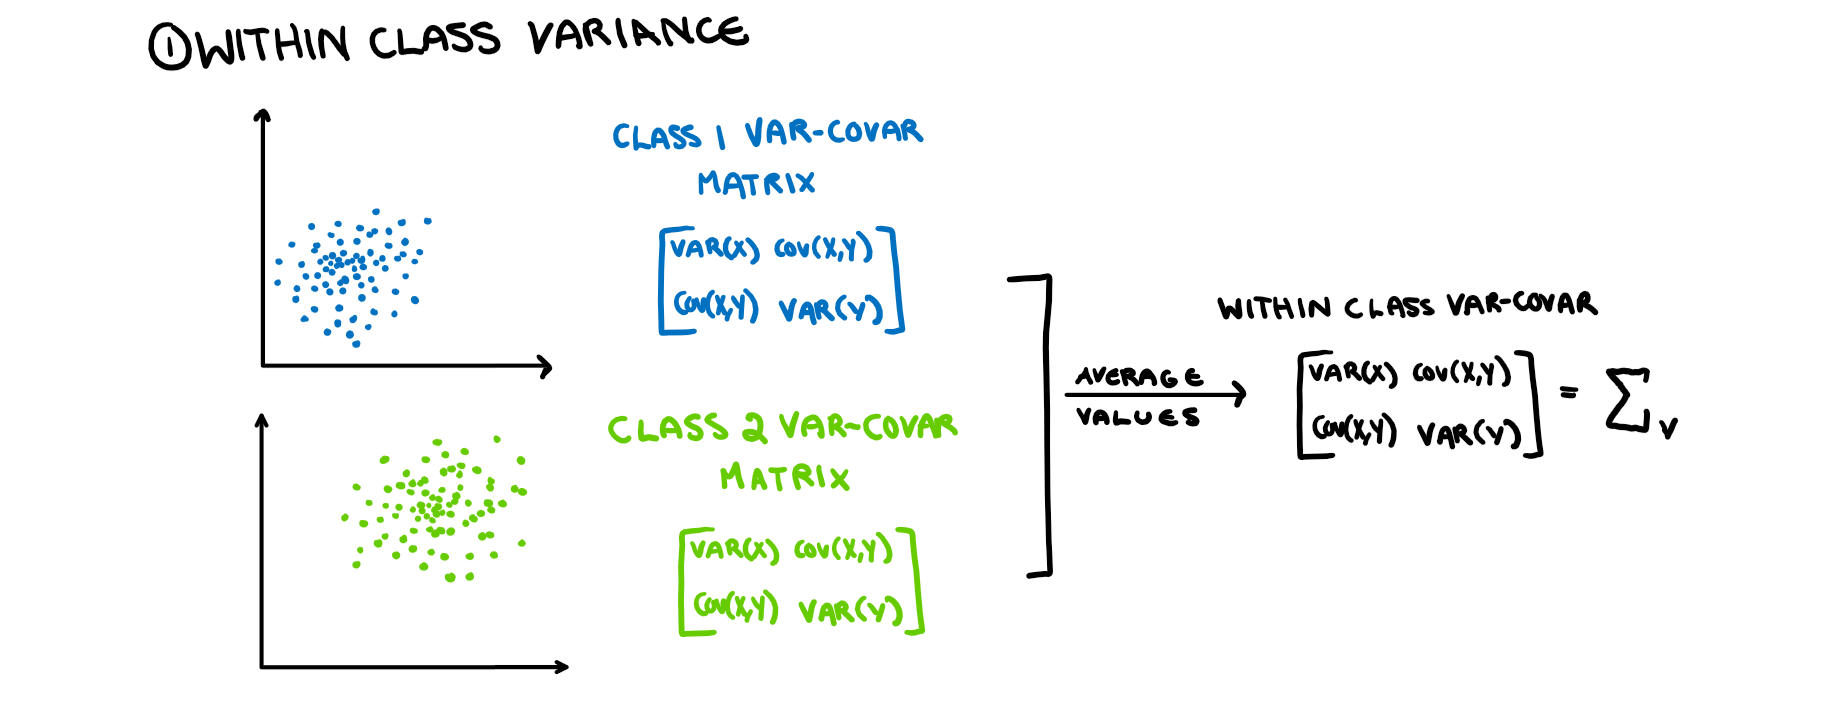 ① WITHIN CLASS VARIANCE
CLASS 1 VAR-COVAR
MATRIX
VAR(X) COV(X,Y)
COV(X,Y) VAR(Y)
CLASS 2 VAR-COVAR
MATRIX
VAR(X) COV(X,Y)
COV(X,Y) VAR(Y)
AVERAGE
VALUES
WITHIN CLASS VAR-COVAR
VAR(X) COV(X,Y)
COV(X,Y) VAR(Y)
= Σ_V